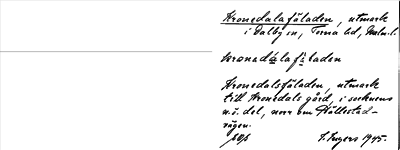 Kronedalsfäladen, utmark
i Dalby sn, Torna hd, Malm. l.
kronedálafä̀laden
Kronedalsfäladen, utmark
till Kronedals gård, i socknens
n.ö. del, norr om Hällestad-
vägen.
I. Ingers 1945.